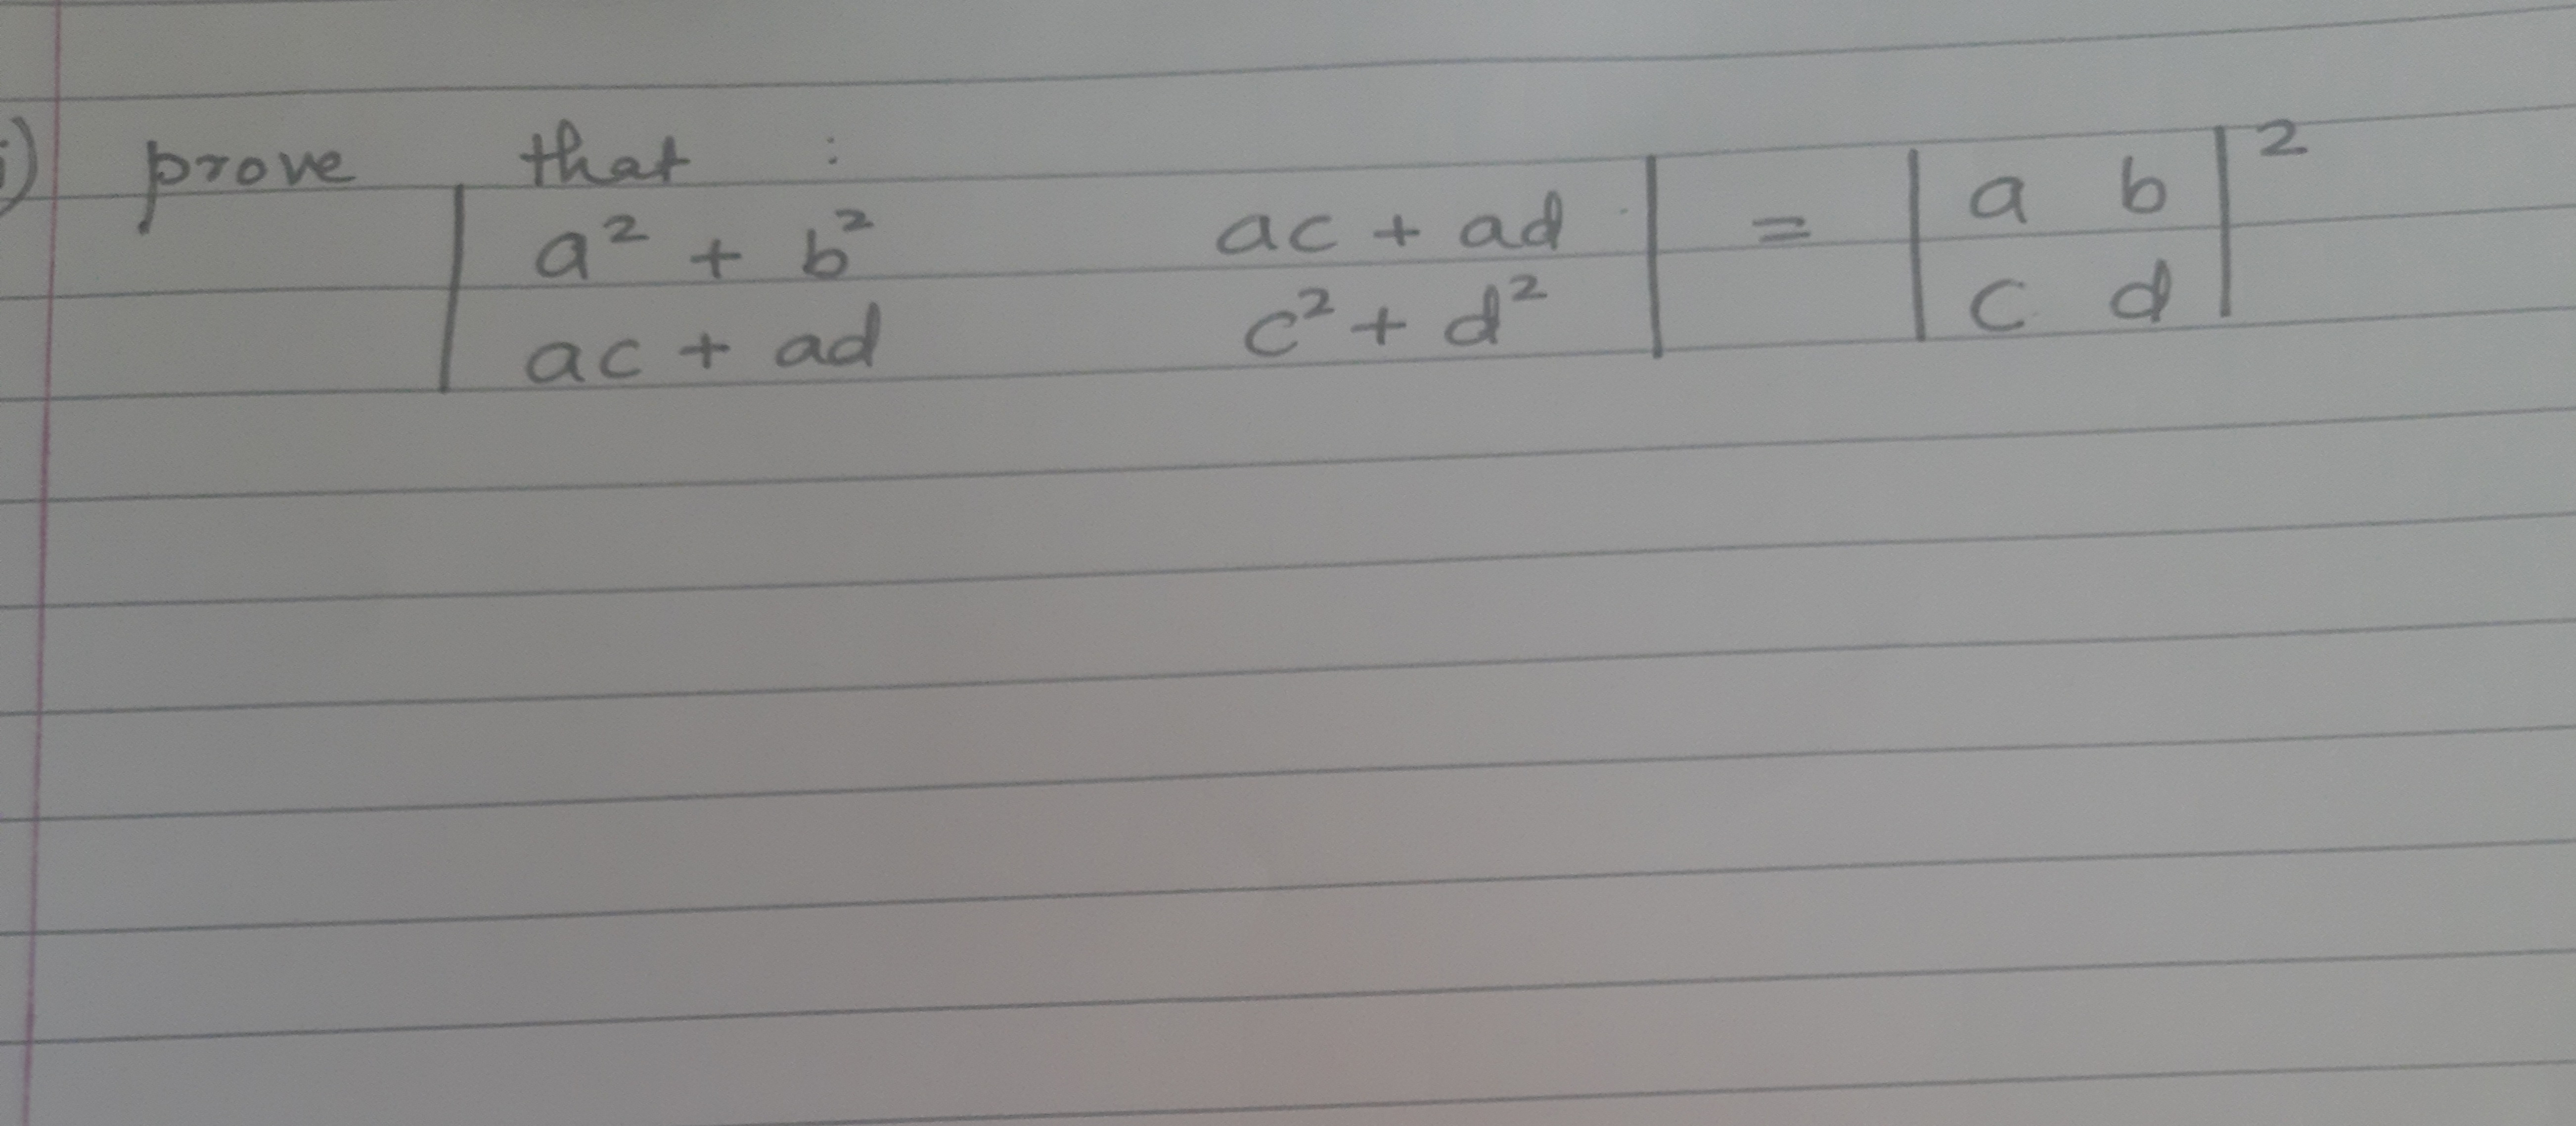 i) prove that :
| a² + b² ac + ad | = | a b |²
| ac + ad c² + d² | | c d |